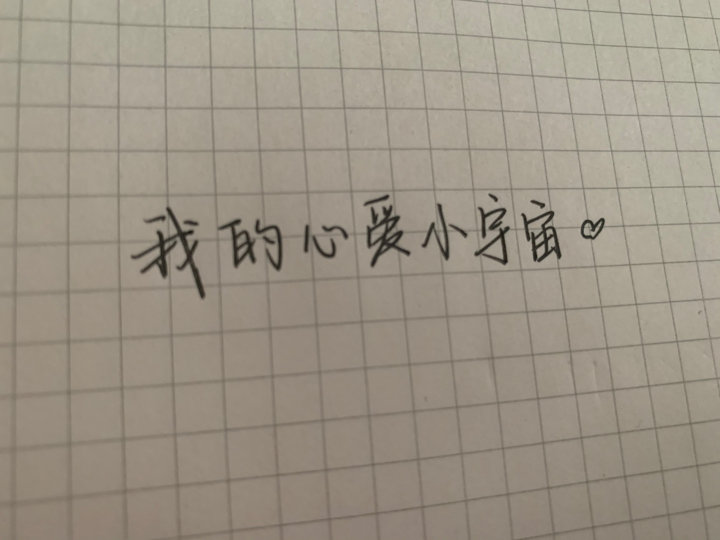 我的心爱小宇宙♡